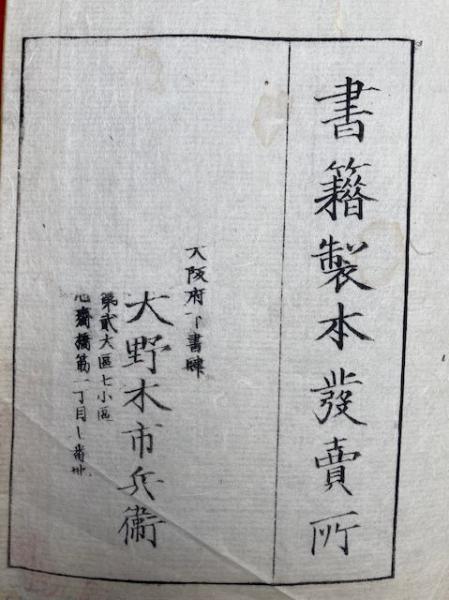 書籍製本發賣所
大阪府下書肆
大野木市兵衞
第貳大區七小區
心齋橋筋一丁目七番地